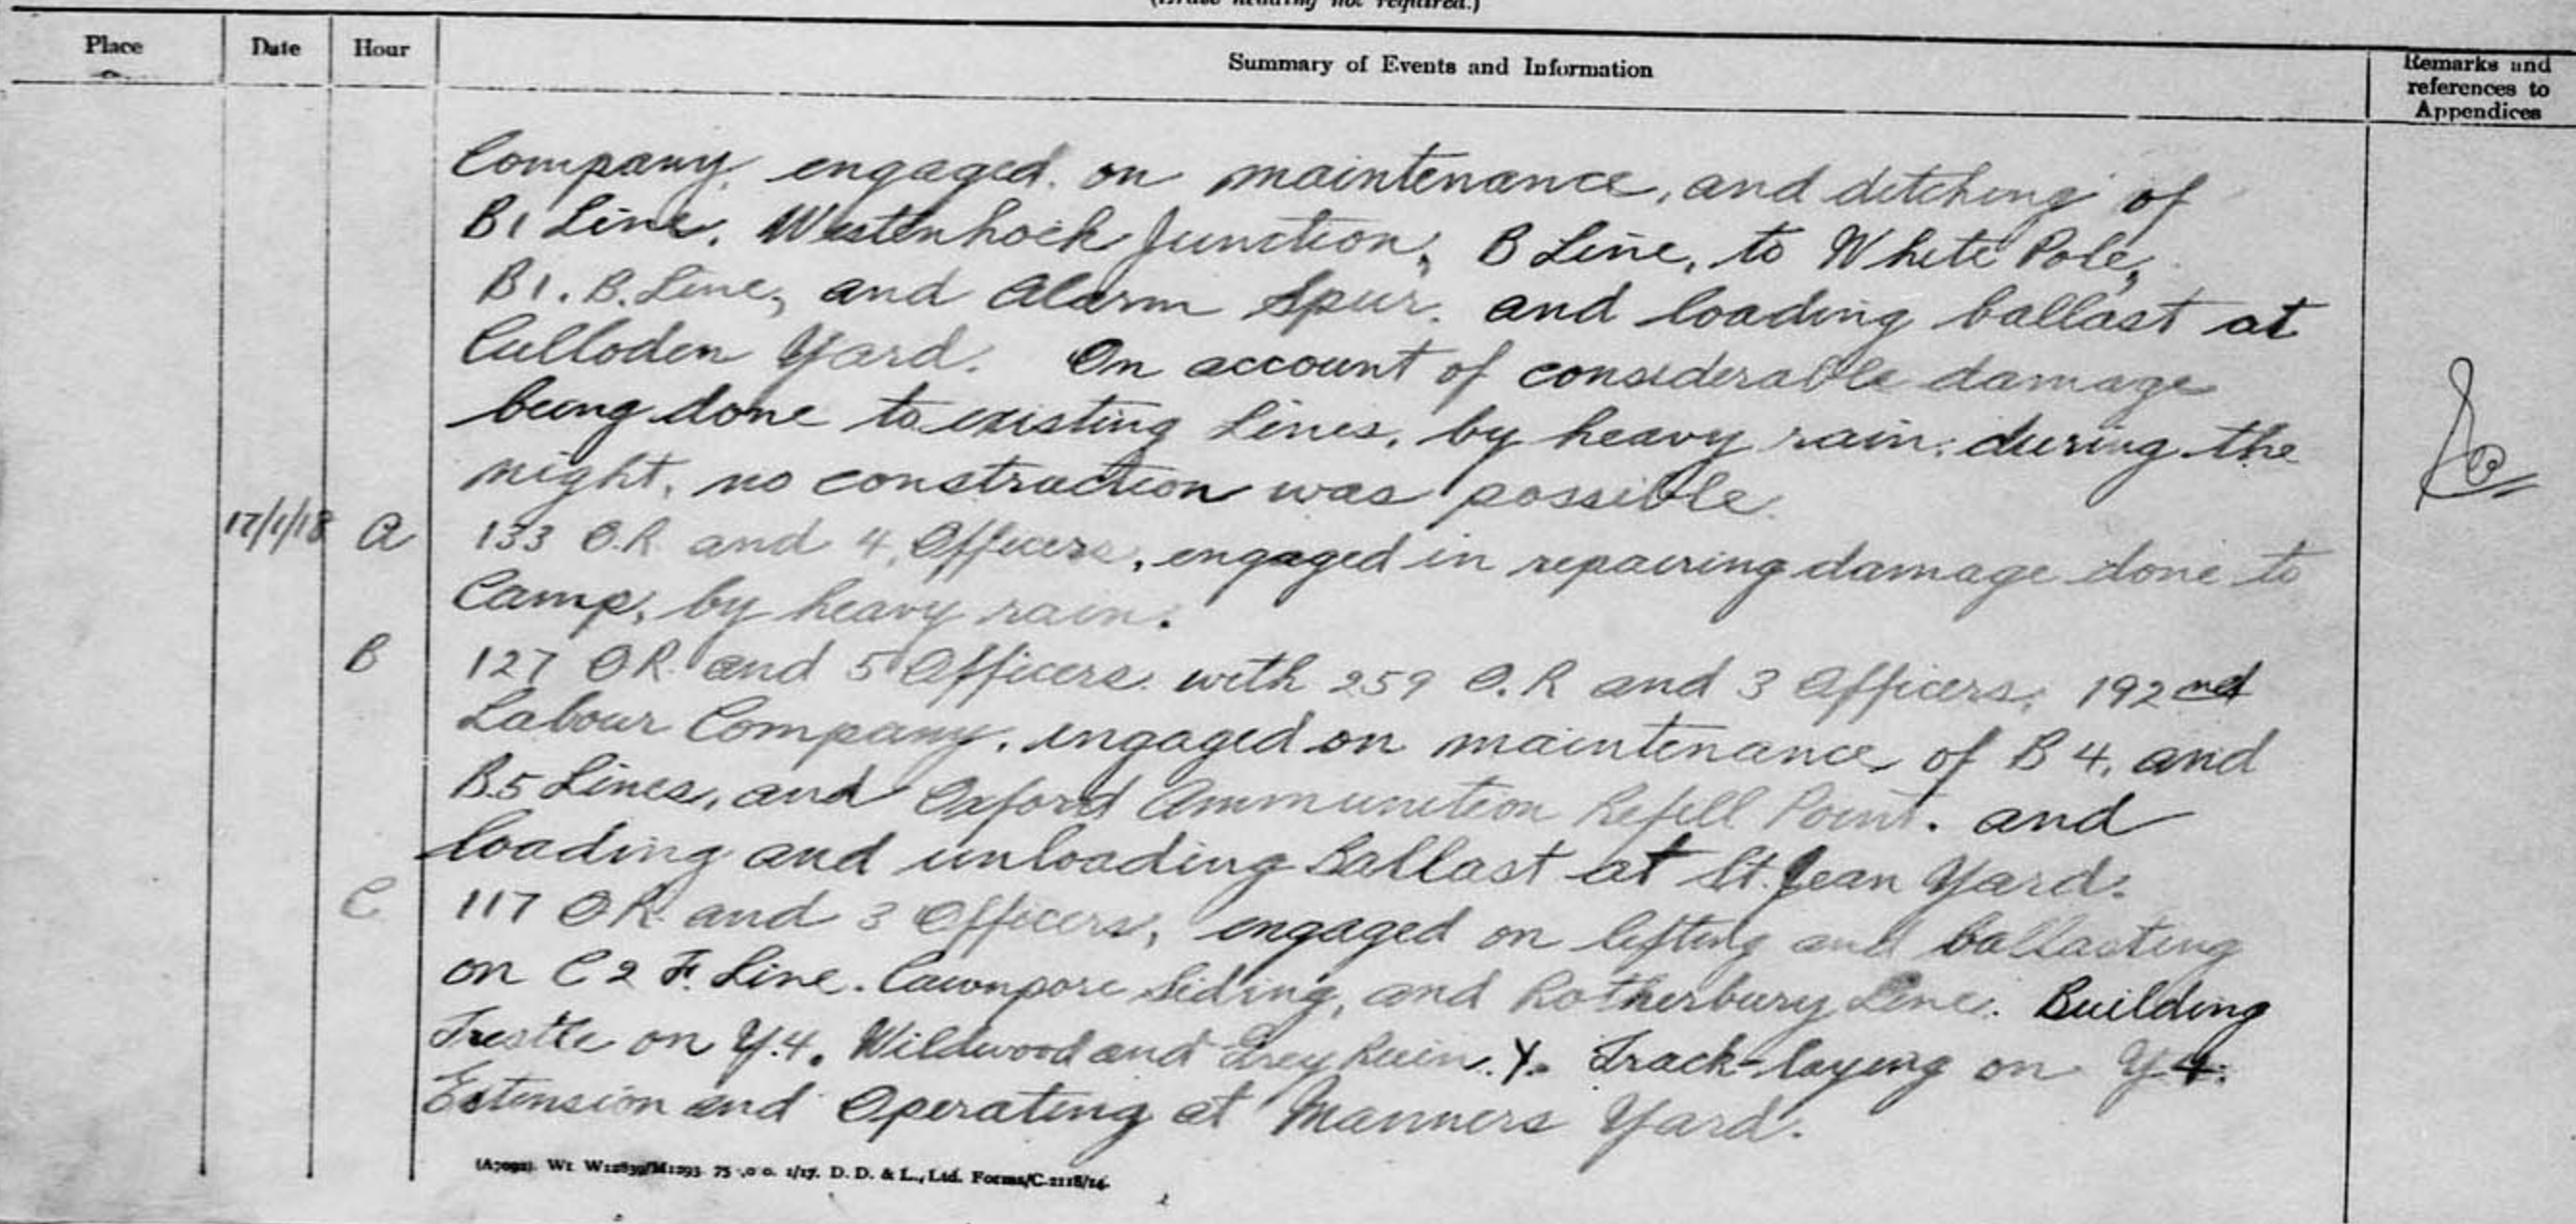 (Erase heading not required.)
Place Date Hour Summary of Events and Information Remarks and references to Appendices
Company, engaged. on maintenance, and ditching of
B1 Line. Westenhoek Junction, B Line, to White Pole,
B1. B. Line, and Alarm Spur. and loading ballast at
Culloden Yard. On account of considerable damage
being done to existing Lines, by heavy rain, during the
night, no construction was possible.
17/1/18 A 133 O.R. and 4 Officers, engaged in repairing damage done to
Camp, by heavy rain.
B 127 O.R. and 5 Officers with 259 O.R and 3 Officers, 192nd
Labour Company, engaged on maintenance, of B4, and
B.5 Lines, and Oxford Ammunition Refill Point. and
loading and unloading Ballast at St. Jean Yard.
C 117 O.R. and 3 Officers, engaged on lifting and ballasting
on C2 F. Line. Cawnpore Siding, and Rotherbury Line. Building
Trestle on Y.4. Wildwood and Grey Ruin. Y. Track-laying on Y4.
Extension and Operating at Manners Yard.
D. D. & L., Ltd. Forms/C.2118/14.